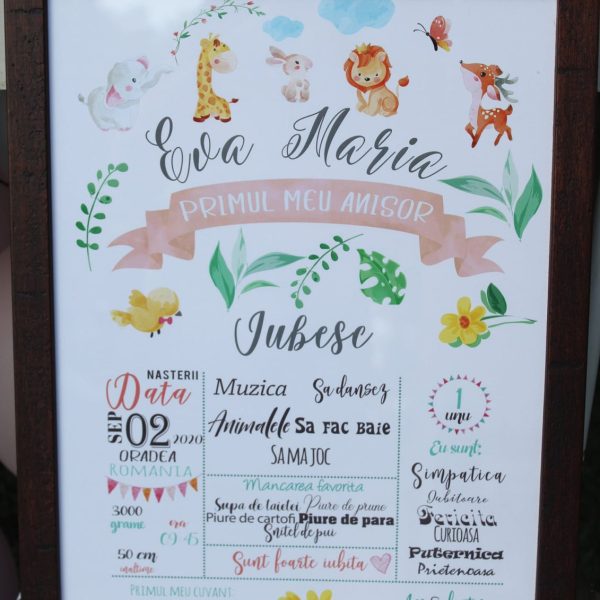 Eva Maria
PRIMUL MEU ANISOR
Iubesc
NASTERII
Data
SEP 02 2020
ORADEA
ROMANIA
3000 grame
ora 09:45
50 cm
inaltime
Muzica Sa dansez
Animalele Sa fac baie
SA MA JOC
Mancarea favorita
Supa de taietei Piure de prune
Piure de cartofi, Piure de para
Snitel de pui
Sunt foarte iubita
1
unu
Eu sunt:
Simpatica
Iubitoare
Fericita
CURIOASA
Puternica
Prietenoasa
PRIMUL MEU CUVANT: